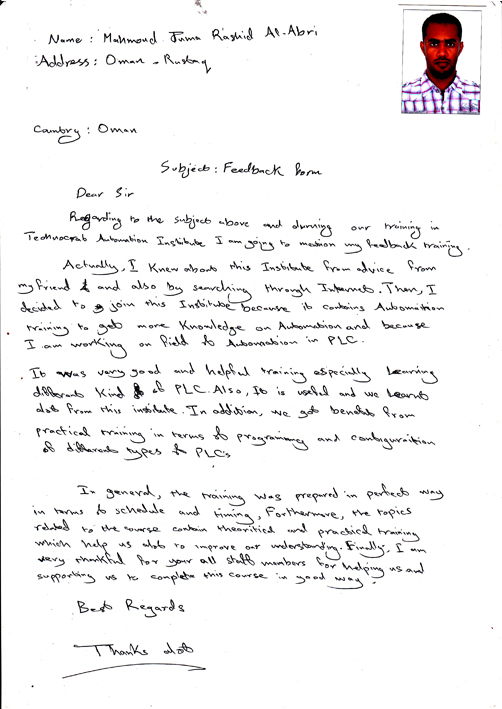 Name : Mahmoud Juma Rashid Al-Abri
Address : Oman - Rustaq
Country : Oman
Subject : Feedback Form
Dear Sir
Regarding to the subject above and dunning our training in
Technocrab Automation Institute I am going to mation my feedback training.
Actually, I Knew about this Institute from advice from
my friend & and also by searching through Internet. Then, I
decided to join this Institute because it contains Automation
training to get more Knowledge on Automation and because
I am working on field of Automation in PLC.
It was very good and helpful training especially Learning
different Kind of PLC. Also, It is useful and we Learnt
alot from this institute. In addition, we got benefits from
practical training in terms of programing and configuration
of different types of PLCs
In general, the training was prepared in perfect way
in terms of schedule and timing, Forthermore, the topics
related to the course contain theoritical and practical training
which help us alot to improve our understanding. Finally, I am
very thankful for your all staff members for helping us and
supporting us to complete this course in good way.
Best Regards
Thanks alot